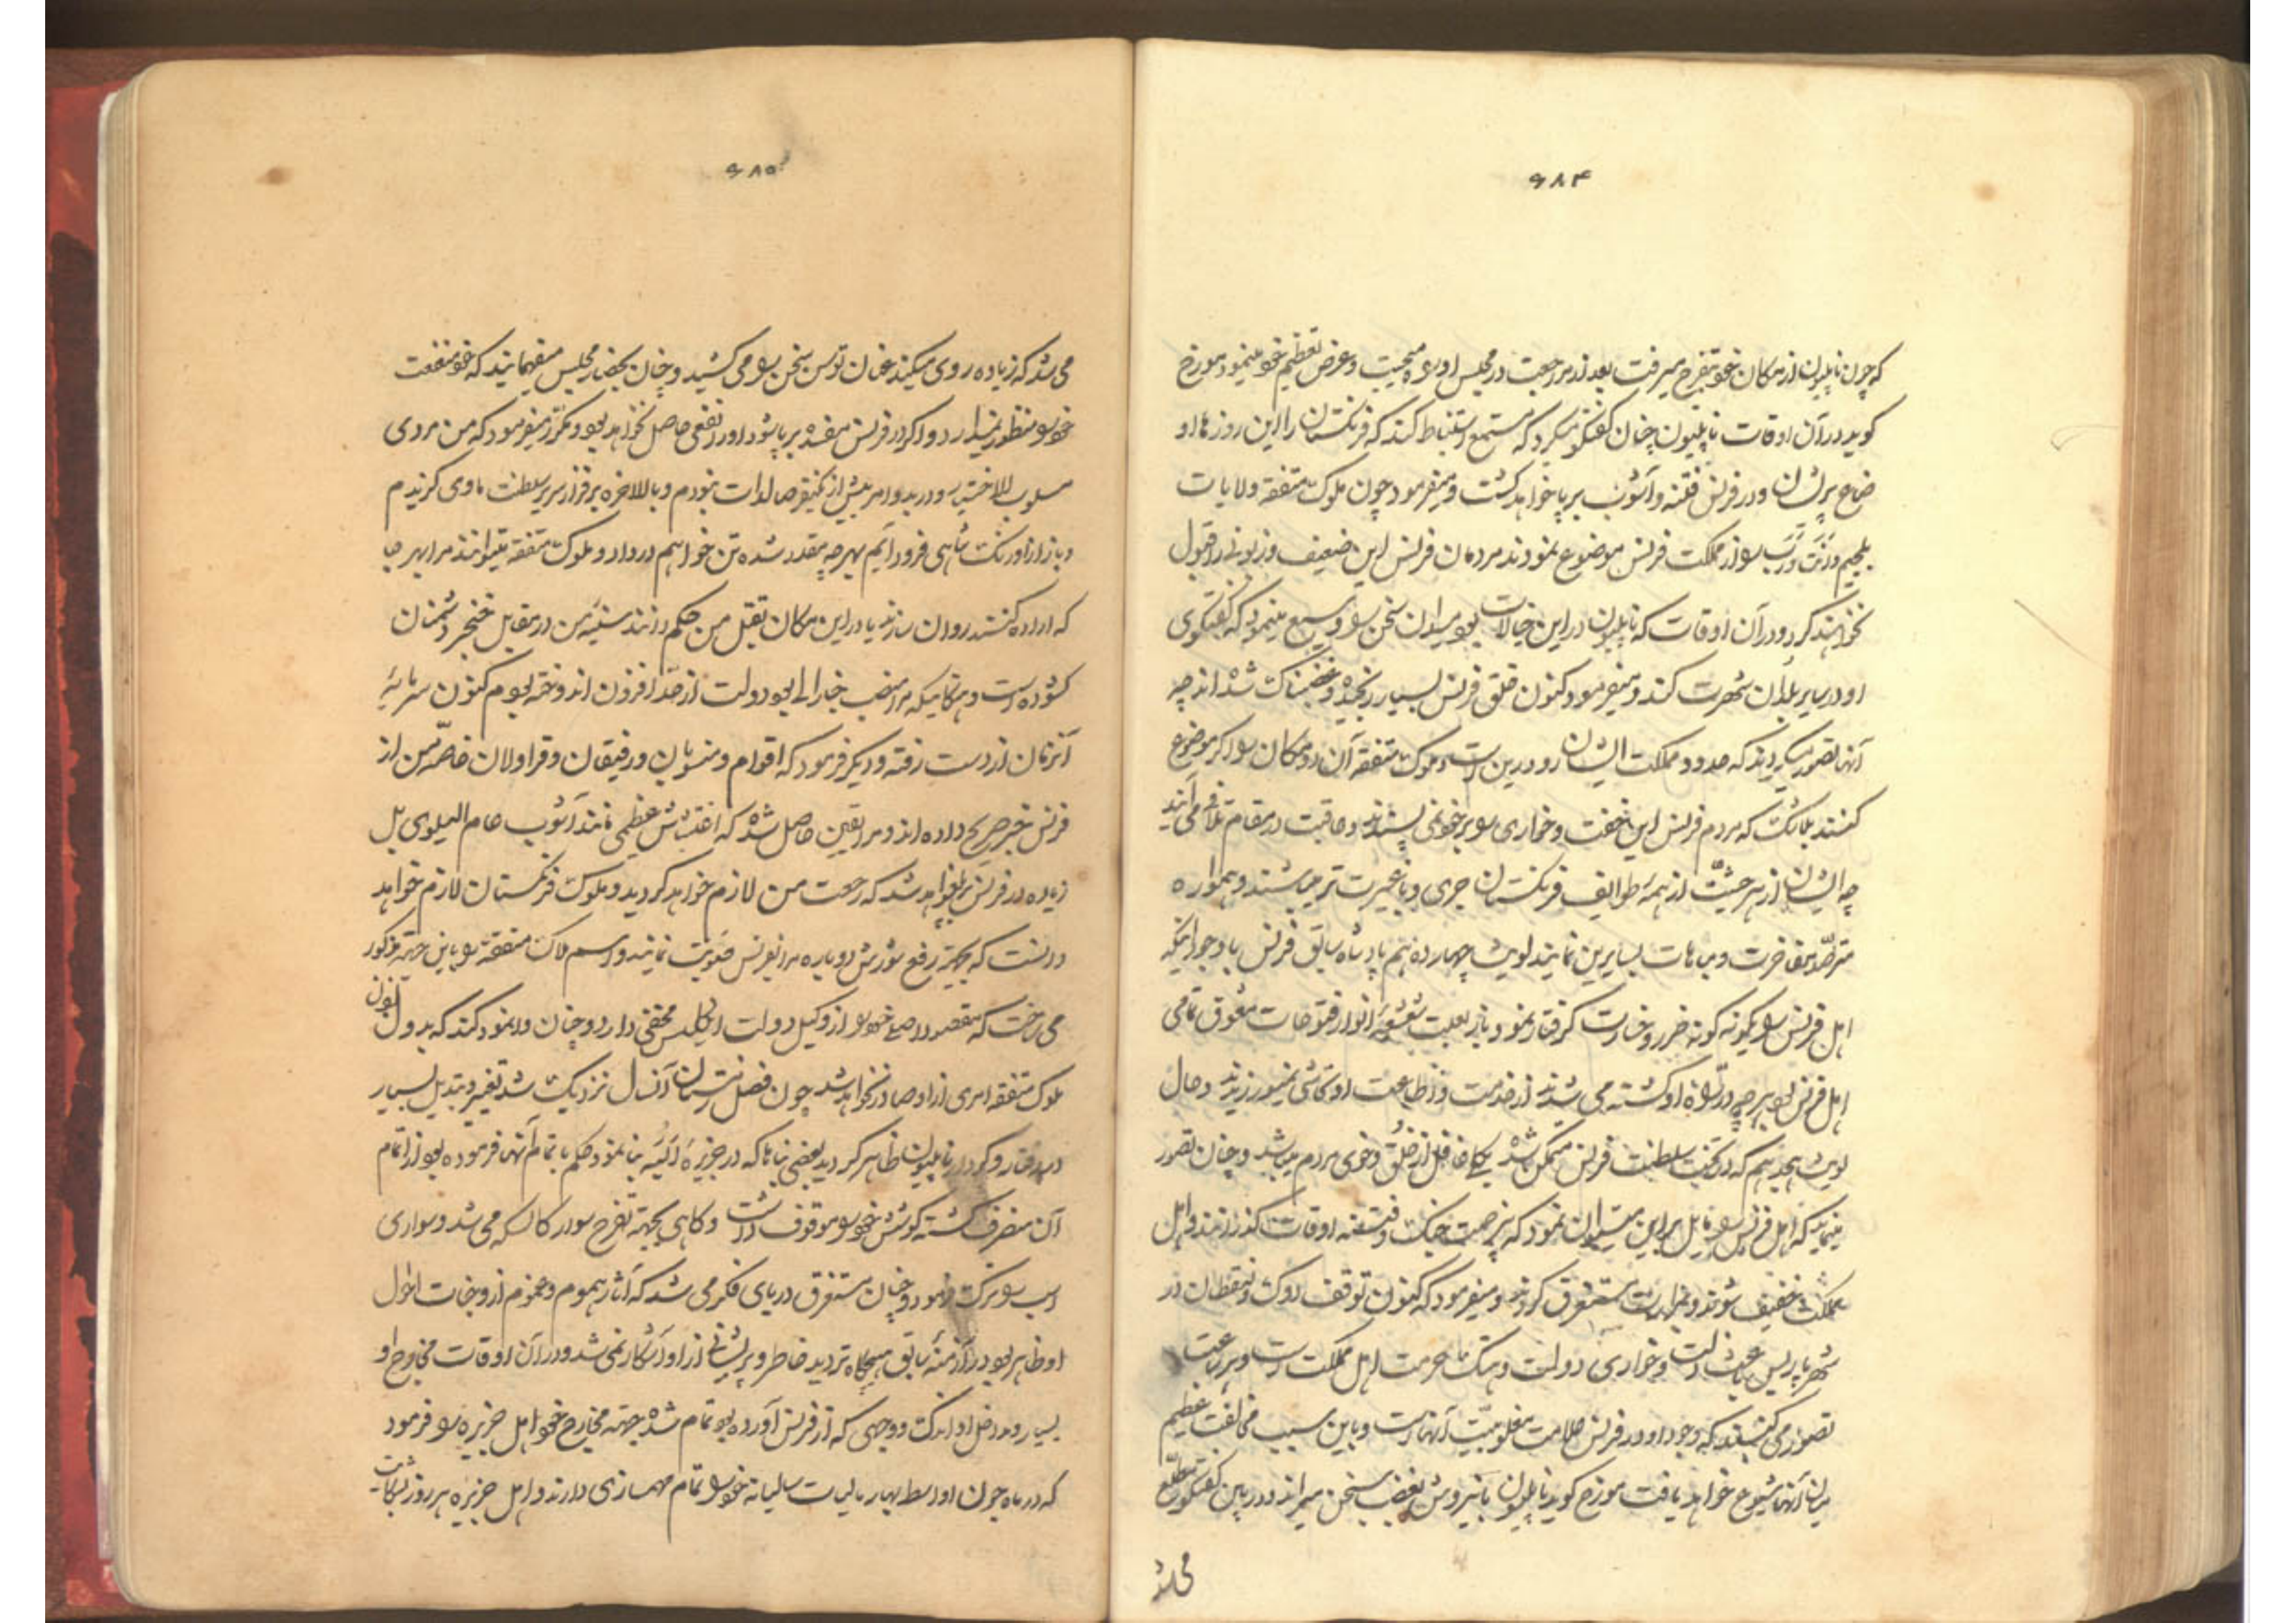 ۶۸۴
که چون ناپلیون از مکان خود بتفرج میرفت بعد از مراجعت در مجلس او وعرض تعظیم خود مینمود مورخ
کوید در آن اوقات ناپلیون چنان کفتکو میکرد که مستمع استنباط کند که فرنکستان را این روزها او
ضاع پریشان و در فرنس فتنه و آشوب برپا خواهد کشت و میفرمود چون ملوک متفقه ولایات
بلجیم را از مملکت فرنس موضوع نمودند مردمان فرنس این ضعیف و زبونی را قبول
نخواهند کرد و در آن اوقات که ناپلیون در این خیالات بود میدان سخن را وسیع مینمود که کفتکوی
او در سایر بلدان شهرت کند و میفرمود کنون خلق فرنس بسیار رنجیده و غضبناک شده اند چه
آنها تصور میکردند که حدود مملکت ایشان رود رین است و ملوک متفقه آن مکان را اکر موضوع
کنند که مردم فرنس این خفت و خواری را بر خود نمی پسندند و عاقبت در مقام تلافی می آیند
چه ایشان از هر حیثیت از همه طوایف فرنکستان جری و با غیرت تر میباشند و همواره
مترصد مفاخرت و مباهات بسایرین نمایند لویش چهاردهم پادشاه سابق فرنس با وجود اینکه
اهل فرنس را بکونه کونه ضرر و خسارت کرفتار نمود باز بعلت شعشعه انوار فتوحات معوق تمامی
اهل فرنس هر چه در راه او کشته می شدند از خدمت و اطاعت او تحاشی نمیورزیدند و حال
لویش هیجدهم که در تخت سلطنت فرنس متمکن شده غافل از خلق و خوی مردم میباشد و چنان تصور
مینماید که اهل فرنس را مایل براین میتوان نمود که بیزحمت جنک و فتنه اوقات کذرانند و اهل
مملکت خفیف شوند و مستغرق کردند و میفرمود که کنون توقف دوک ولینقطان در
شهر پاریس باعث ذلت و خواری دولت و هتک حرمت اهل مملکت است و هر ساعت
تصور می کنند که وجود او در فرنس علامت مغلوبیت آنهاست و باین سبب مخالفت عظیم
میان آنها شیوع خواهد یافت مورخ کوید ناپلیون بغضب سخن میراند و در بین کفتکو مطلع
می شد
۶۸۵
می شد که زیاده روی میکند عنان توسن سخن را می کشید و چنان بحضار مجلس میفهمانید که خود منفعت
خود را منظور ندارد و اکر در فرنس مفسده برپا شود او را نفعی حاصل نخواهد بود و مکرر میفرمود که من مردی
مسلوب الاختیار و در بدو امر بیش از یکنفر صالدات نبودم و بالاخره بر فراز سریر سلطنت ماوی کزیدم
و باز از اورنک شاهی فرود آیم بهر چه مقدر شده تن خواهم در داد و ملوک متفقه میتوانند مرا بهر جا
که اراده کنند روان سازند یا در این مکان بقتل من حکم دانند سینه من در مقابل خنجر دشمنان
کشوده است و هنکامیکه مرا منصب جنرالی بود دولت از حد افزون اندوخته بودم کنون سرمایه
آنزمان از دست رفته و دیکر فرمود که اقوام و منسوبان و رفیقان و قراولان خاصه من از
فرنس خبر صریح داده اند و مرا یقین حاصل شده که اغتشاش عظیمی مانند آشوب عام البلوی بل
زیاده در فرنس برپا خواهد شد که رجعت من لازم خواهد کردید و ملوک فرنکستان لازم خواهد
دانست که بجهته رفع شورش دوباره مرا بفرنس نمایند و اسم ملوک متفقه را باین جهته مذکور
می ساخت که مقصود اصلی خود را از وکیل دولت انکلیس مخفی دارد و چنان وانمود کند که بدون اذن
ملوک متفقه امری از او صادر نخواهد شد چون فصل زمستان آنسال نزدیک شد تغییر و تبدیل بسیار
در رفتار و کردار ناپلیون ظاهر کردید بعضی بناها که در جزیره البه بنا نمود حکم باتمام آنها فرموده بود از اتمام
آن منصرف کشته کوشش خود را موقوف داشت و کاهی بجهته تفرج سوار کالسکه می شد و سواری
اسب را ترک نمود و چنان مستغرق دریای فکر می شد که آثار هموم و غموم از وجنات احوال
او ظاهر بود در ازمنه سابق هیچکاه تردید خاطر و پریشانی از او آشکار نمی شد و در آن اوقات مخارج او
بسیار و مداخل او اندک و وجهی که از فرنس آورده بود تمام شده بجهته مخارج خود اهل جزیره را فرمود
که در ماه جون اواسط بهار مالیات سالیانه خود را تمام مهمسازی دارند و اهل جزیره هر روز بشکایت